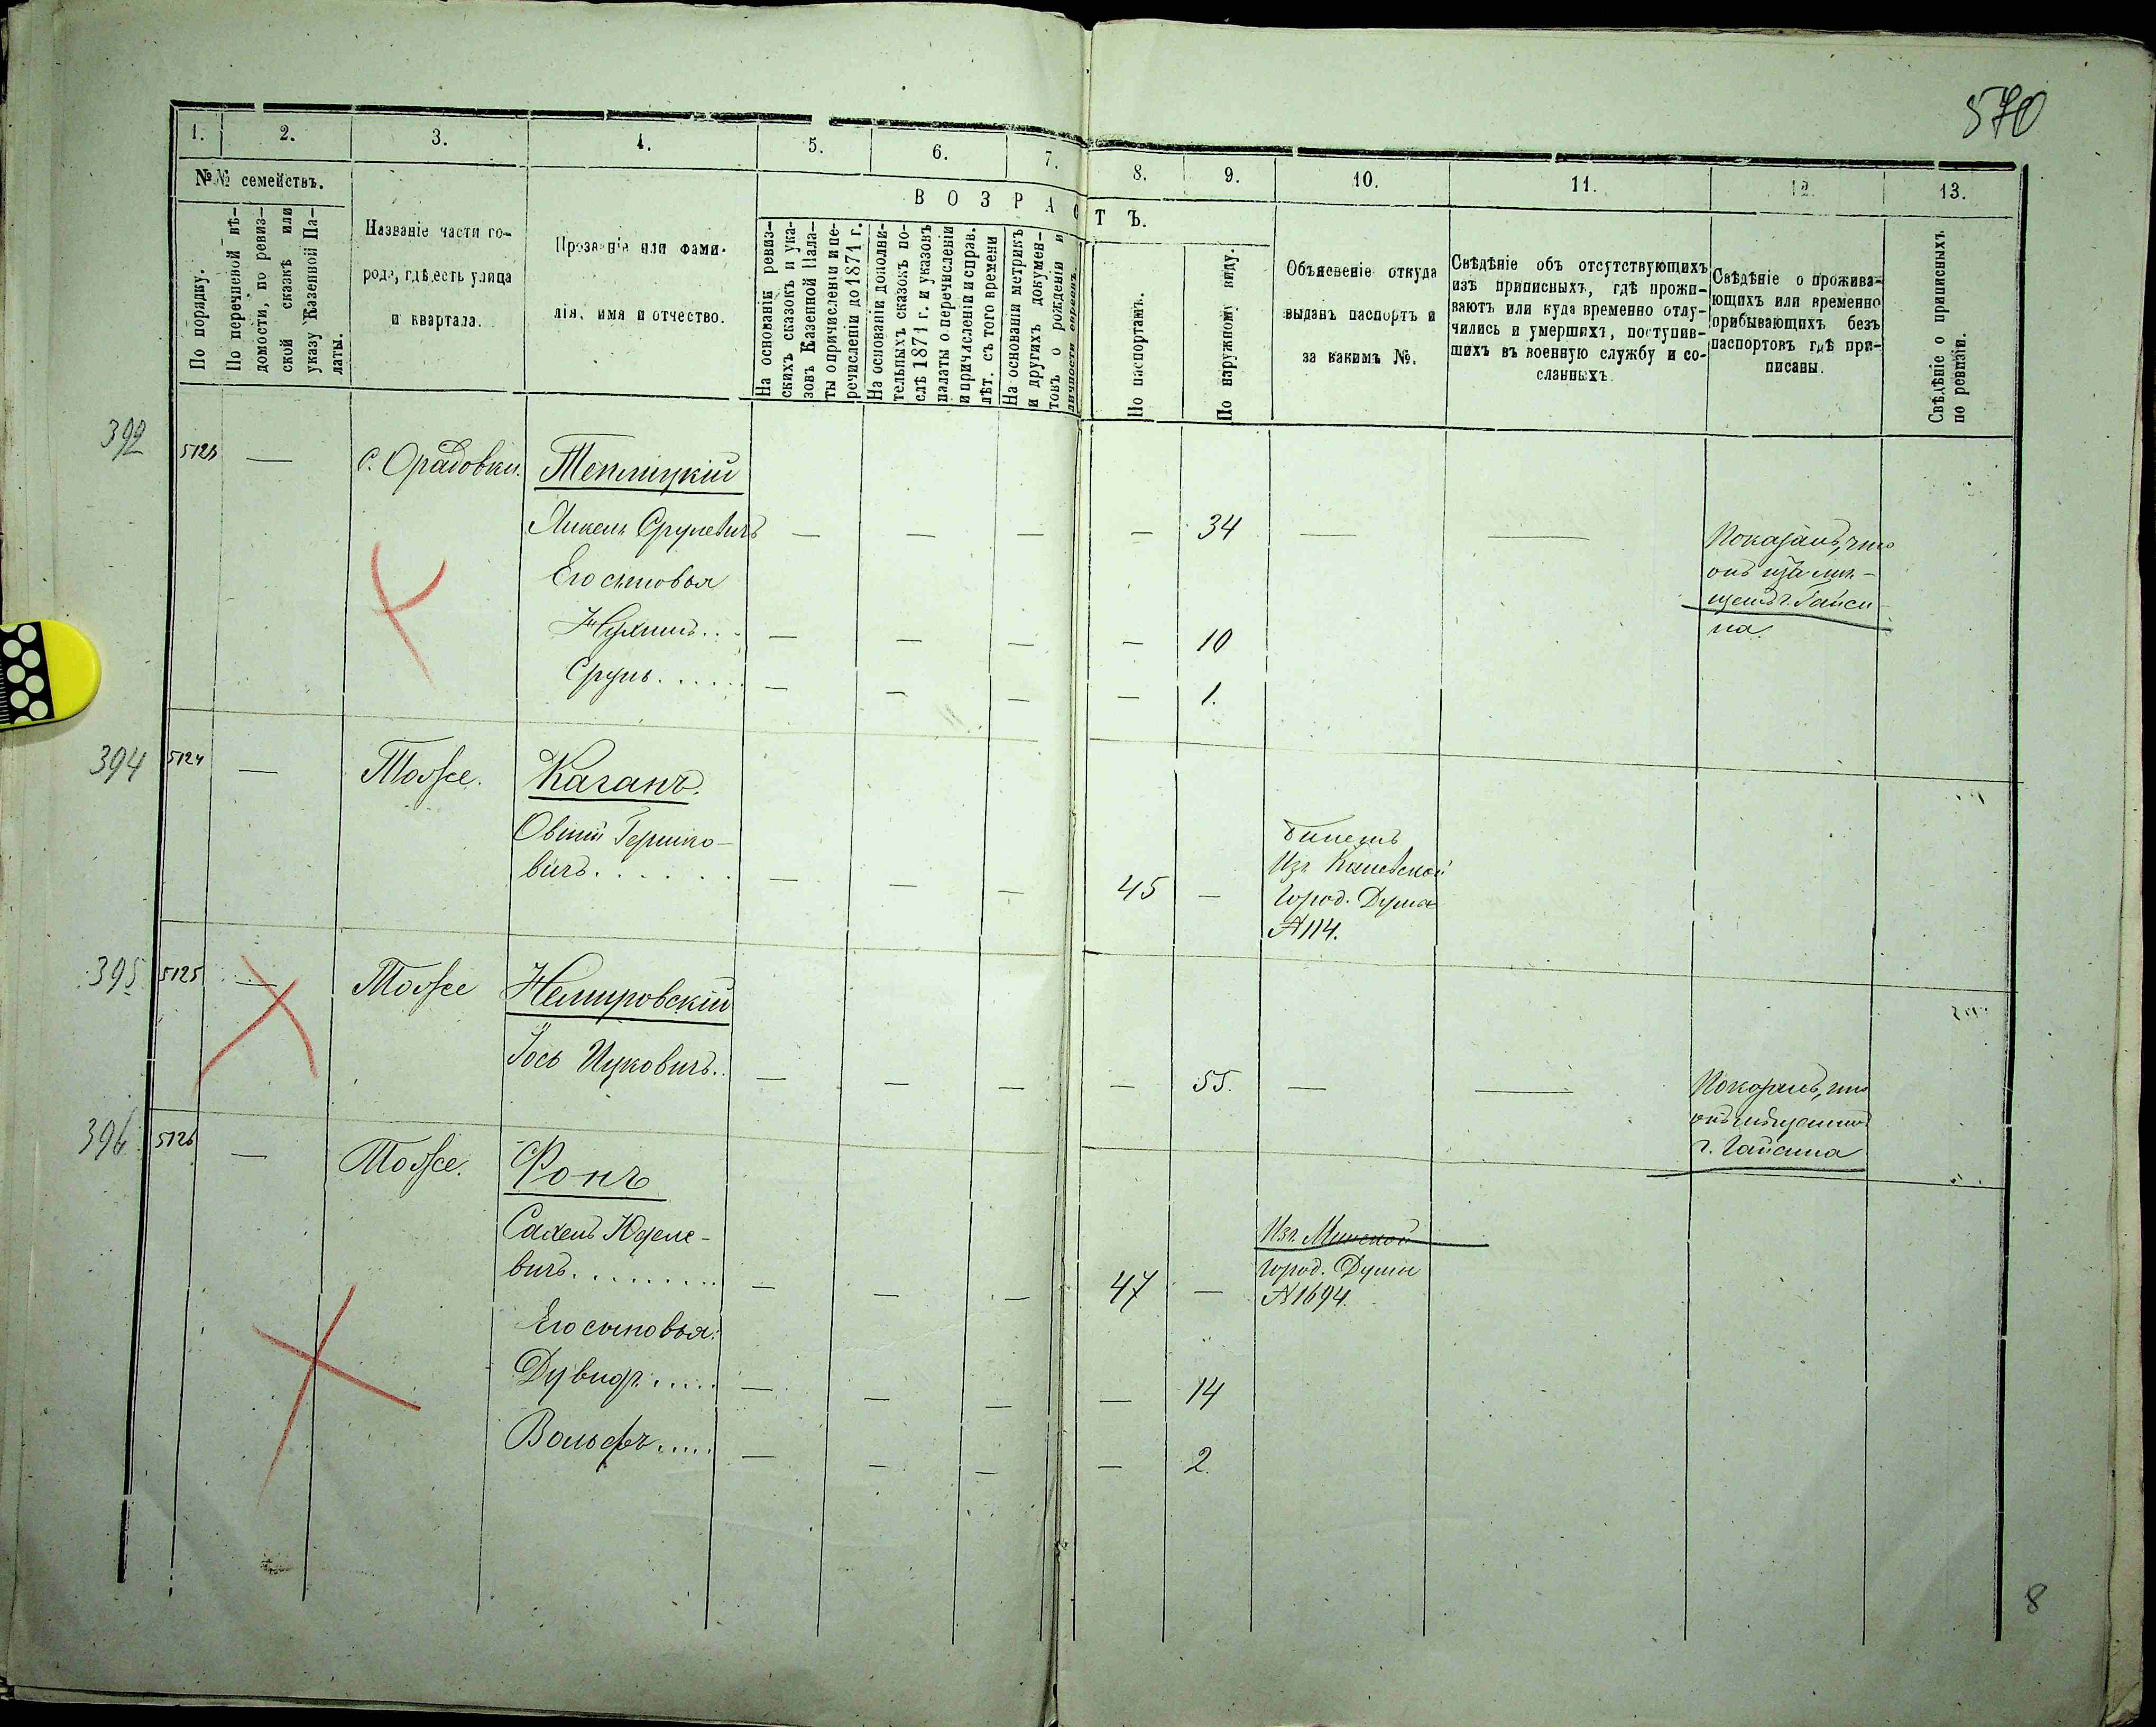 570
1. 2. 3. 4. 5. 6. 7. 8. 9. 10. 11. 12. 13.
№№ семействъ.
По порядку.
По перечневой вѣ-
домости, по ревиз-
ской сказкѣ или
указу Казенной Па-
латы.
Названіе части го-
рода, гдѣ есть улица
и квартала.
Прозваніе или фами-
лія, имя и отчество.
ВОЗРАСТЪ.
На основаніи ревиз-
скихъ сказокъ и ука-
зовъ Казенной Пала-
ты о причисленіи и пе-
речисленіи до 1871 г.
На основаніи дополни-
тельныхъ сказокъ по-
слѣ 1871 г. и указовъ
палаты о перечисленіи
и причисленіи и справ.
лѣт. съ того времени
На основаніи метрикъ
и другихъ докумен-
товъ о рожденіи и
личности евреевъ.
По паспортамъ.
По наружному виду.
Объясненіе откуда
выданъ паспортъ и
за какимъ №.
Свѣдѣніе объ отсутствующихъ
изъ приписныхъ, гдѣ прожи-
ваютъ или куда временно отлу-
чились и умершихъ, поступив-
шихъ въ военную службу и со-
сланныхъ.
Свѣдѣніе о прожива-
ющихъ или временно
прибывающихъ безъ
паспортовъ гдѣ при-
писаны.
Свѣдѣніе о приписныхъ
по ревизіи.
392 5123 — с. Орадовки. Теплицкій
Срулевичъ — — — — 34 — — Показалъ, что
онъ изъ мѣ-
щанъ г. Гайси-
на.
Его сыновья
Нухимъ... — — — — 10
Сруль...... — — — — 1.
394 5124 — Тоже. Каганъ.
Овшій Гершко-
вичъ...... — — — 45 — Билетъ
Изъ Каневской
Город. Дума
№114.
395 5125 — Тоже Немировскій
Іось Ицковичъ.. — — — — 55. — — Показалъ, что
онъ мѣщанинъ
г. Гайсина
396 5126 — Тоже. Фонъ
Юделе-
вичъ......... — — — 47 — Изъ Минской
город. Думы
№1694.
Его сыновья:
Дувидъ..... — — — — 14
Вольфъ..... — — — — 2.
8